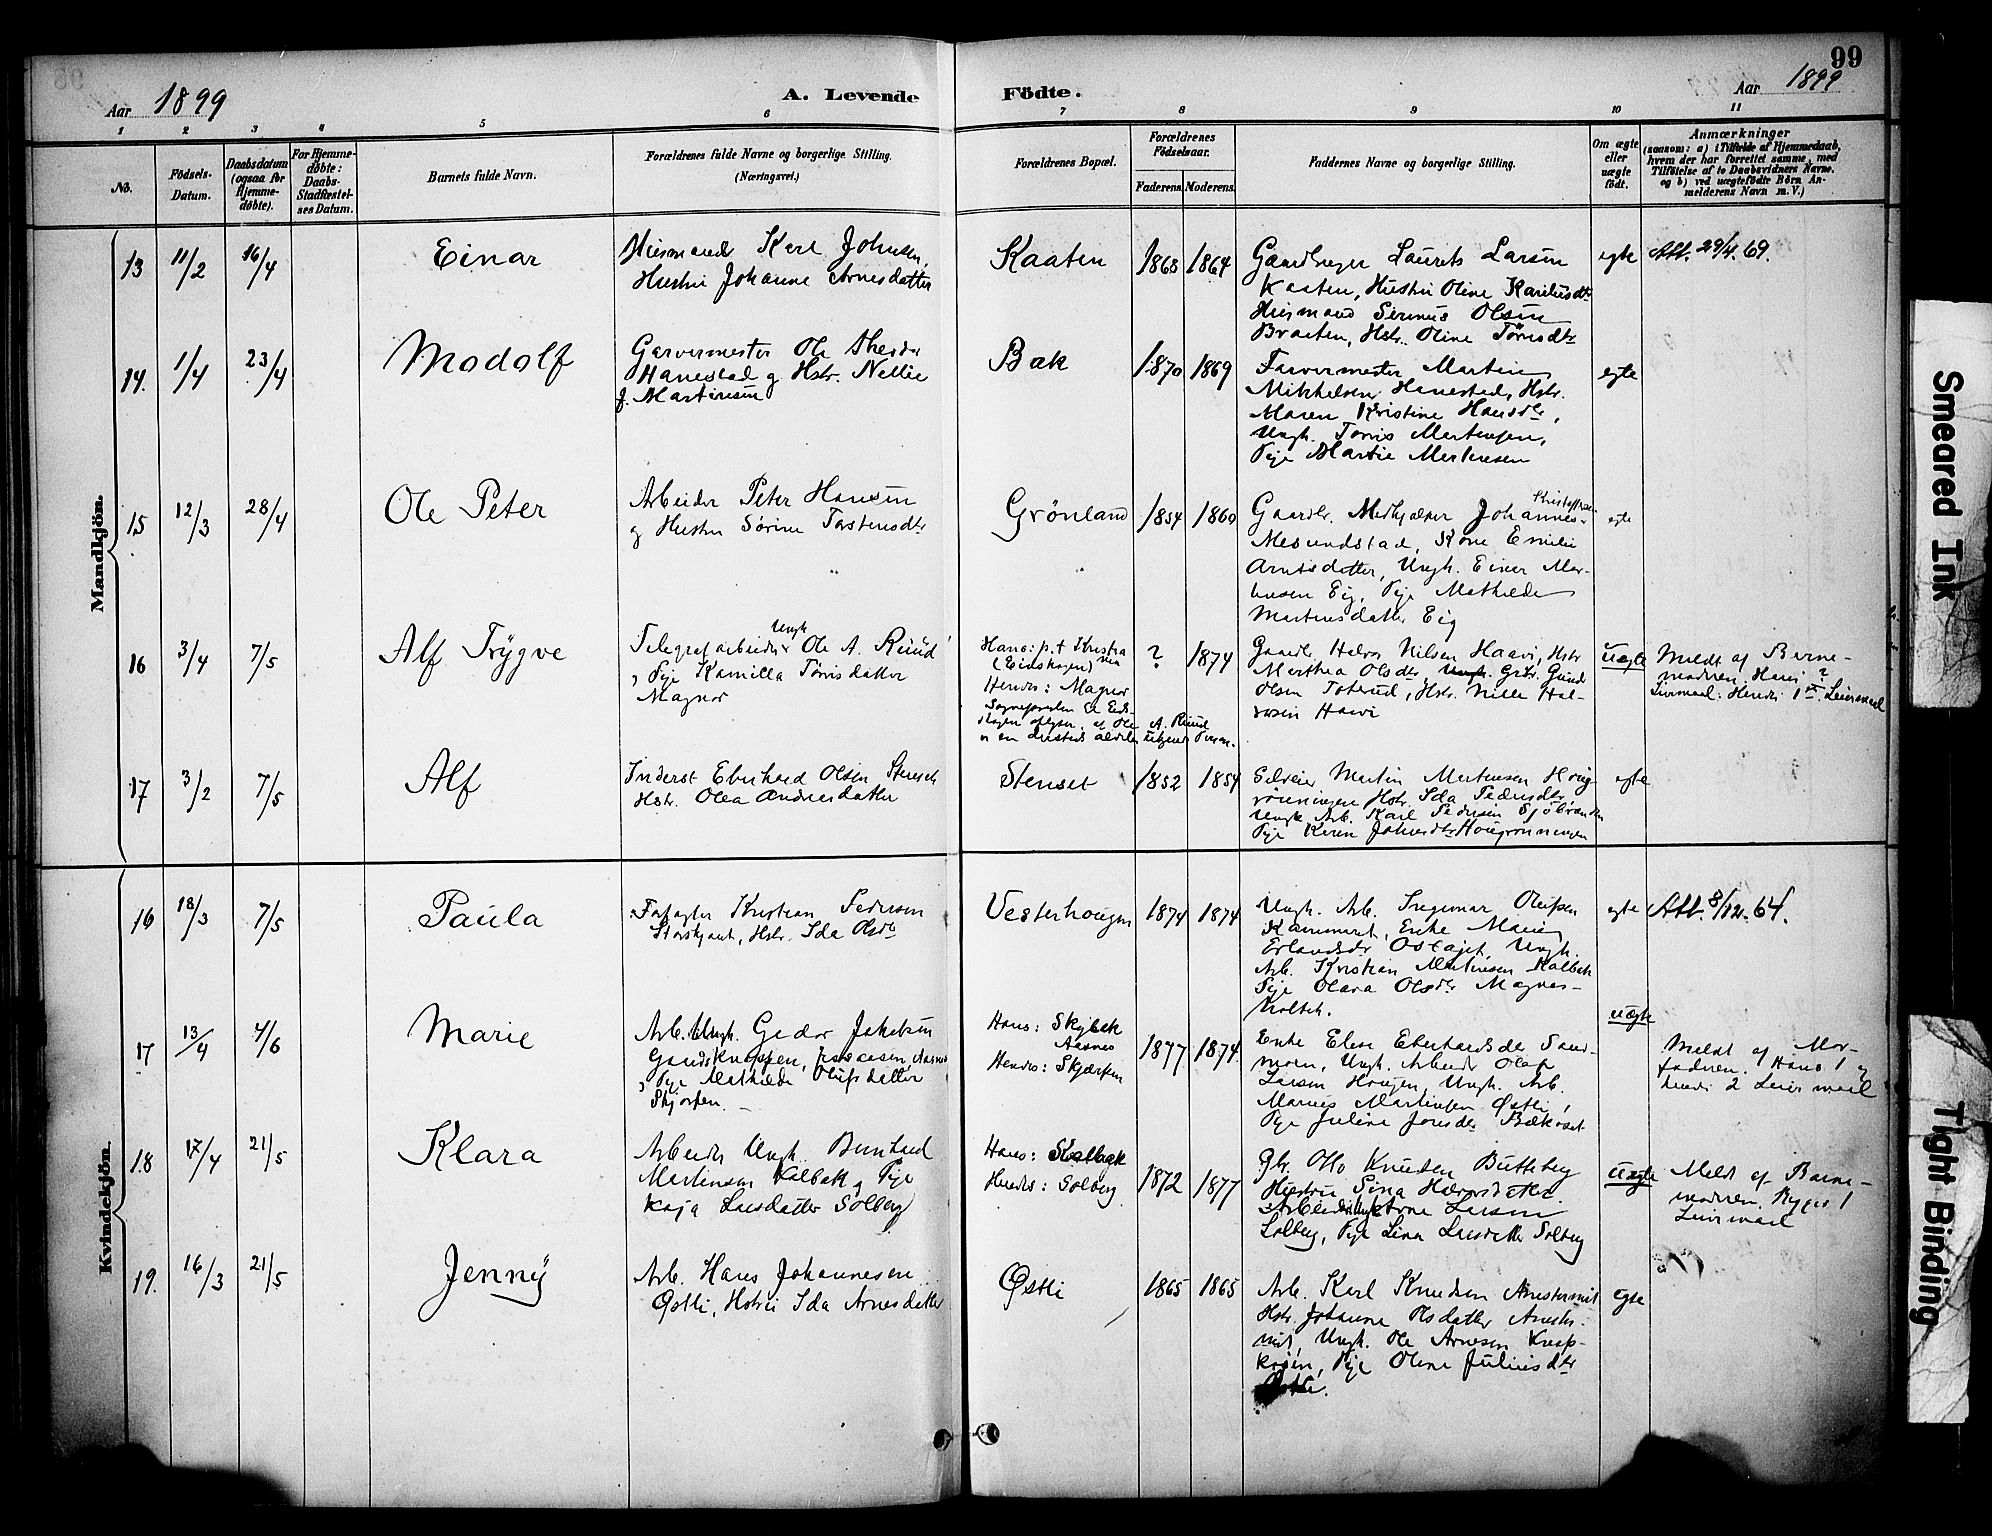 99
Aar 1899
A. Levende
Födte.
Aar 1899
1 2 3 4 5 6 7 8 9 10 11
No.
Födsels-
Datum.
Daabsdatum
(ogsaa for
Hjemme-
døbte).
For Hjemme-
döbte:
Daabs-
Stadfæstel-
ses Datum.
Barnets fulde Navn.
Forældrenes fulde Navne og borgerlige Stilling.
(Næringsvei.)
Forældrenes Bopæl.
Forældrenes
Födselsaar.
Faderens. Moderens.
Faddernes Navne og borgerlige Stilling.
Om ægte
eller
uægte
födt.
Anmærkninger
(saasom: a) i Tilfælde af Hjemmedaab,
hvem der har forrettet samme, med
Tilföielse af to Daabsvidners Navne.
og b) ved uægtefödte Börn An-
melderens Navn m. V.)
Mandkjön.
13 11/2 16/4 Einar
Karl Johnsen,
Hustru Johanne Arnesdatter
Kaaten 1868 1864
Gaardbruger Laurits Larsen
Kaaten, Hustru Oline
Husmand Olsen
Braaten, Hstr. Oline
egte
Att. 29/4. 69.
14. 1/4 23/4 Modolf
Garvermester Ole
Hanestad og Hstr. Nellie
f. Martinsen
Bak 1870 1869
Farvermester Martin
Mikkelsen Hanestad, Hstr.
Maren Kristine Hansdtr,
Ungk. Martinsen,
Pige Martie Martinsen
egte
15 12/3 28/4 Ole Peter
Arbeider Peter Hansen
og Hustru Sørine Torstensdtr
Grönland 1854 1860
Kristoffersen
Gaardbr. Medhjælper Johannes
Mesundstad, Kone Emilie
Arntsdatter, Ungk. Einar Mar-
tinsen Eig, Pige Mathilde
Martinsdatter Eig
egte
16 3/4 7/5 Alf Trygve
Ungk
Telegrafarbeider Ole A. Ruud
, Pige Kamilla datter
Magnor
Hans: p.t Kristia
nia
(Eidskogen)
Hendes: Magnor
Sognepresten til Eids-
kogen oplyser, at Ole A. Ruud
er en dersteds aldeles ukjendt Person.
? 1874
Gaardbr. Halvor Nilsen Haavi, Hstr
Marthea Olsdtr, Grbr. Gund
Olsen Toterud, Hstr. Hal-
vorsen Haavi
uegte
Meldt af Barne-
moderen. Hans ?
Leiermaal: Hendes 1ste Leiermaal
17 3/2 7/5 Alf
Inderst Eberhard Olsen Stenset
Hstr. Olea Andreasdatter
Stenset 1852 1854
Selveier Martin Martinsen Houg-
rönningen Hstr. Ida Pedersdtr,
Ungk. Arb. Karl Pedersen Sjöbranden
Pige Karen Johnsdtr Hougrönningen
egte
Kvindekjön.
16 18/3 7/5 Paula
Forpagter Kristian Pedersen
Hstr. Ida Olsdtr
Vesterhougen 1874 1874
Ungk. Arb. Ingemar Olufsen
Kammeret, Enke Marie
Erlandsdtr Ungk.
Arb. Kristian Martinsen Kalbak
Pige Olava Olsdtr Magnes-
egte
Att. 8/12. 64.
17 13/4 4/6 Marie
Arb. Ungk. Jakobsen
Aasnes
, Pige Mathilde Olufsdatter
Skjærpen.
Hans: Skybak
Aasnes
Hendes: Skjærpen
1877 1874.
Enke Elise Eberhardsdtr Sand-
moen, Ungk. Arbeider Olaf
Larsen Hougen, Ungk. Arb.
Marius Martinsen Østli,
Pige Juline Bækoset
uægte
Meldt af Mor-
faderen. Hans 1 og
hendes 2 Leiermaal
18 17/4 21/5 Klara
Arbeider Ungk. Bernhard
Martinsen Kalbak og Pige
Kaja Larsdatter Solberg
Hans: Kalbak
Hendes: Solberg
1872 1877
Gbr. Otto Knudsen Butteberg
Hustru Sina Halvorsdatter.
Arbeider Ungk Arne Larsen
Solberg, Pige Lina Larsdatter Solberg
uægte
Meldt af Barne-
moderen. Begges 1
Leiermaal
19. 16/3 21/5 Jenny
Arb. Hans Johannesen
Østli, Hstru Ida Arnesdatter
Østli 1865 1865
Arb. Karl Knudsen
Hstr. Johanne Olsdatter
Ungk. Ole Arnesen
Pige Oline Juliusdtr
Østli.
egte
Smeared Ink
Tight Binding